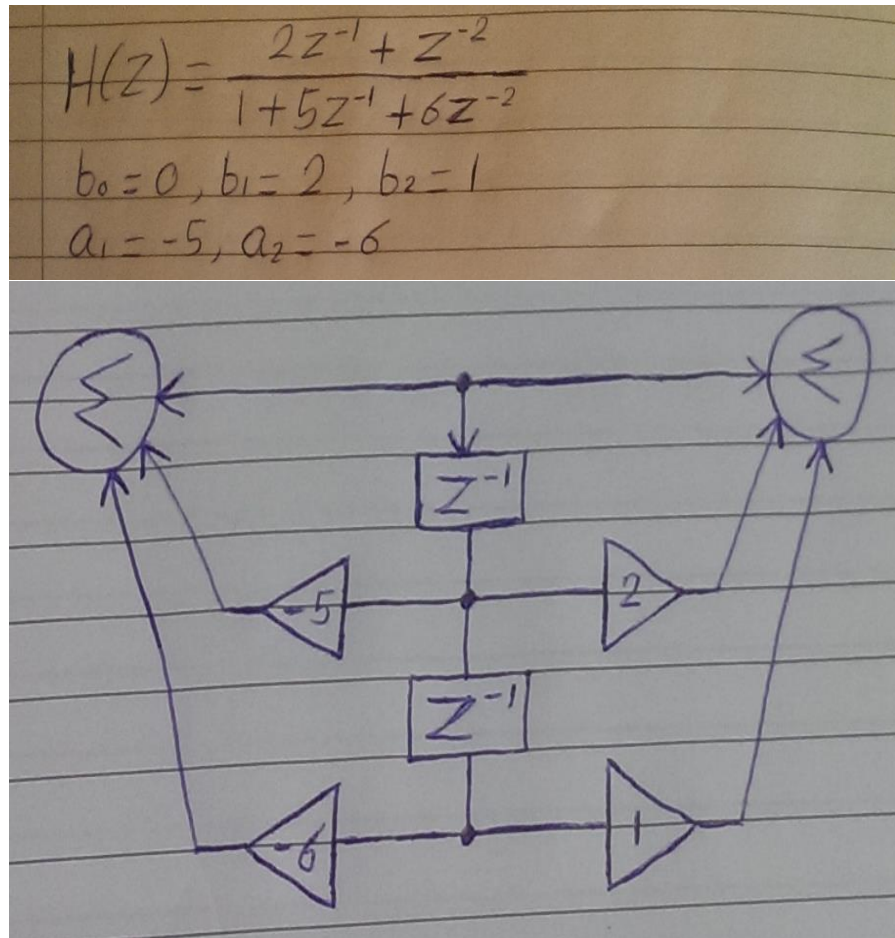 H(Z) = (2Z⁻¹ + Z⁻²) / (1 + 5Z⁻¹ + 6Z⁻²)
b₀ = 0, b₁ = 2, b₂ = 1
a₁ = -5, a₂ = -6
Σ Σ
Z⁻¹
-5 2
Z⁻¹
-6 1